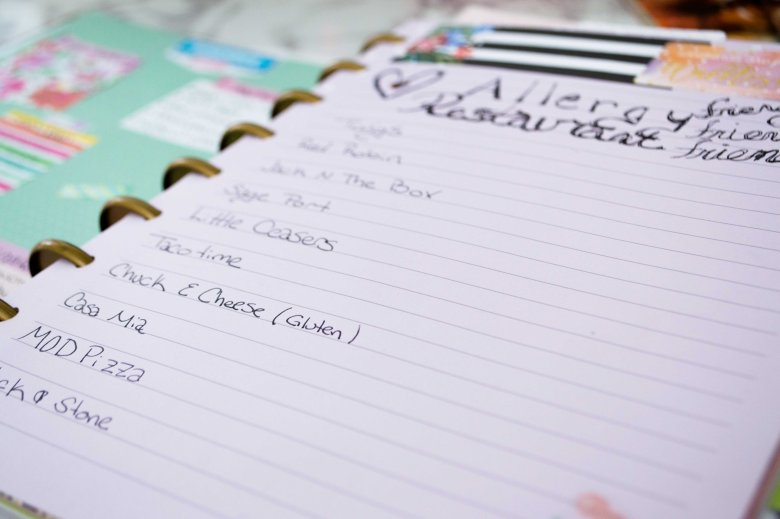 Allergy frien
Restaurant frien
frien
Red Robin
Jack N The Box
Sage Port
Little Ceasers
Taco time
Chuck E Cheese (Gluten)
Casa Mia
MOD Pizza
ck & Stone